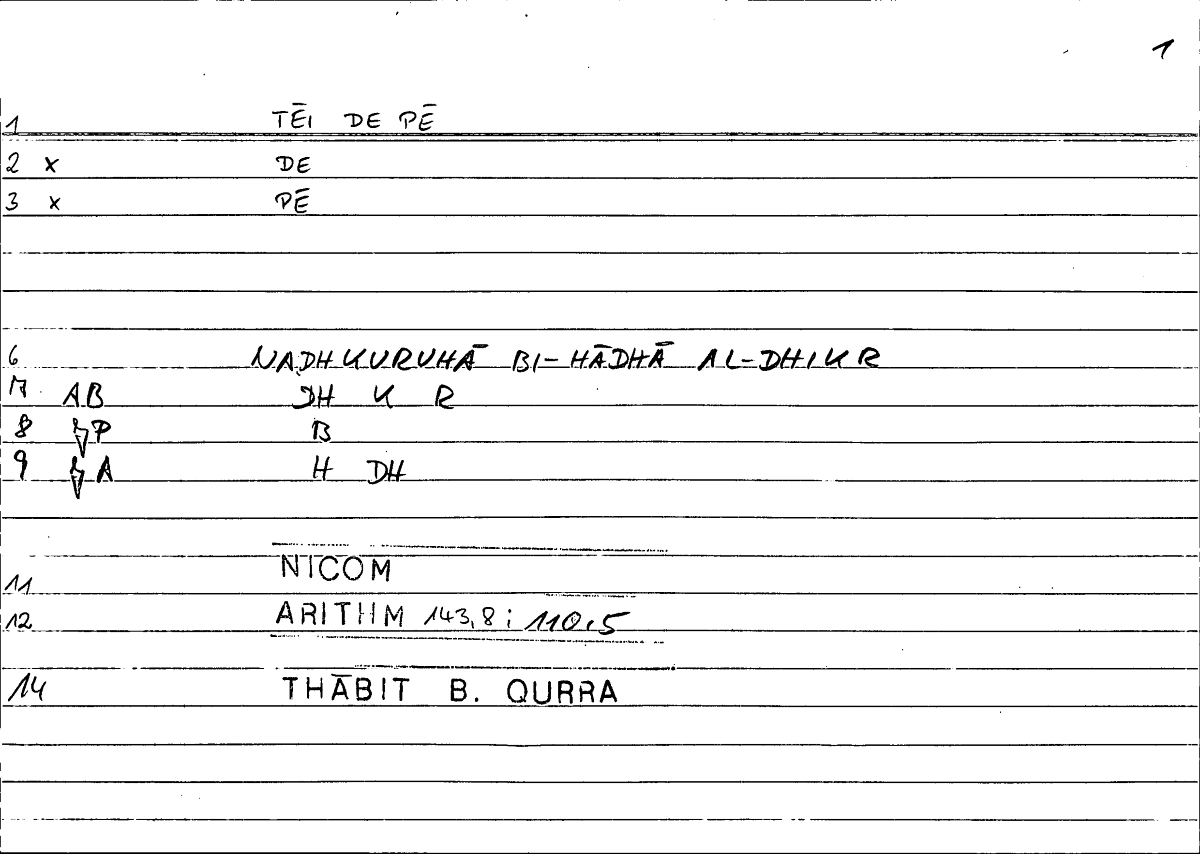 1
1 TĒI DE PĒ
2 x DE
3 x PĒ
6 NADHKURUHĀ BI-HĀDHĀ AL-DHIKR
7 AB DH K R
8 P B
9 A H DH
11 NICOM
12 ARITHM 143,8; 110.5
14 THĀBIT B. QURRA